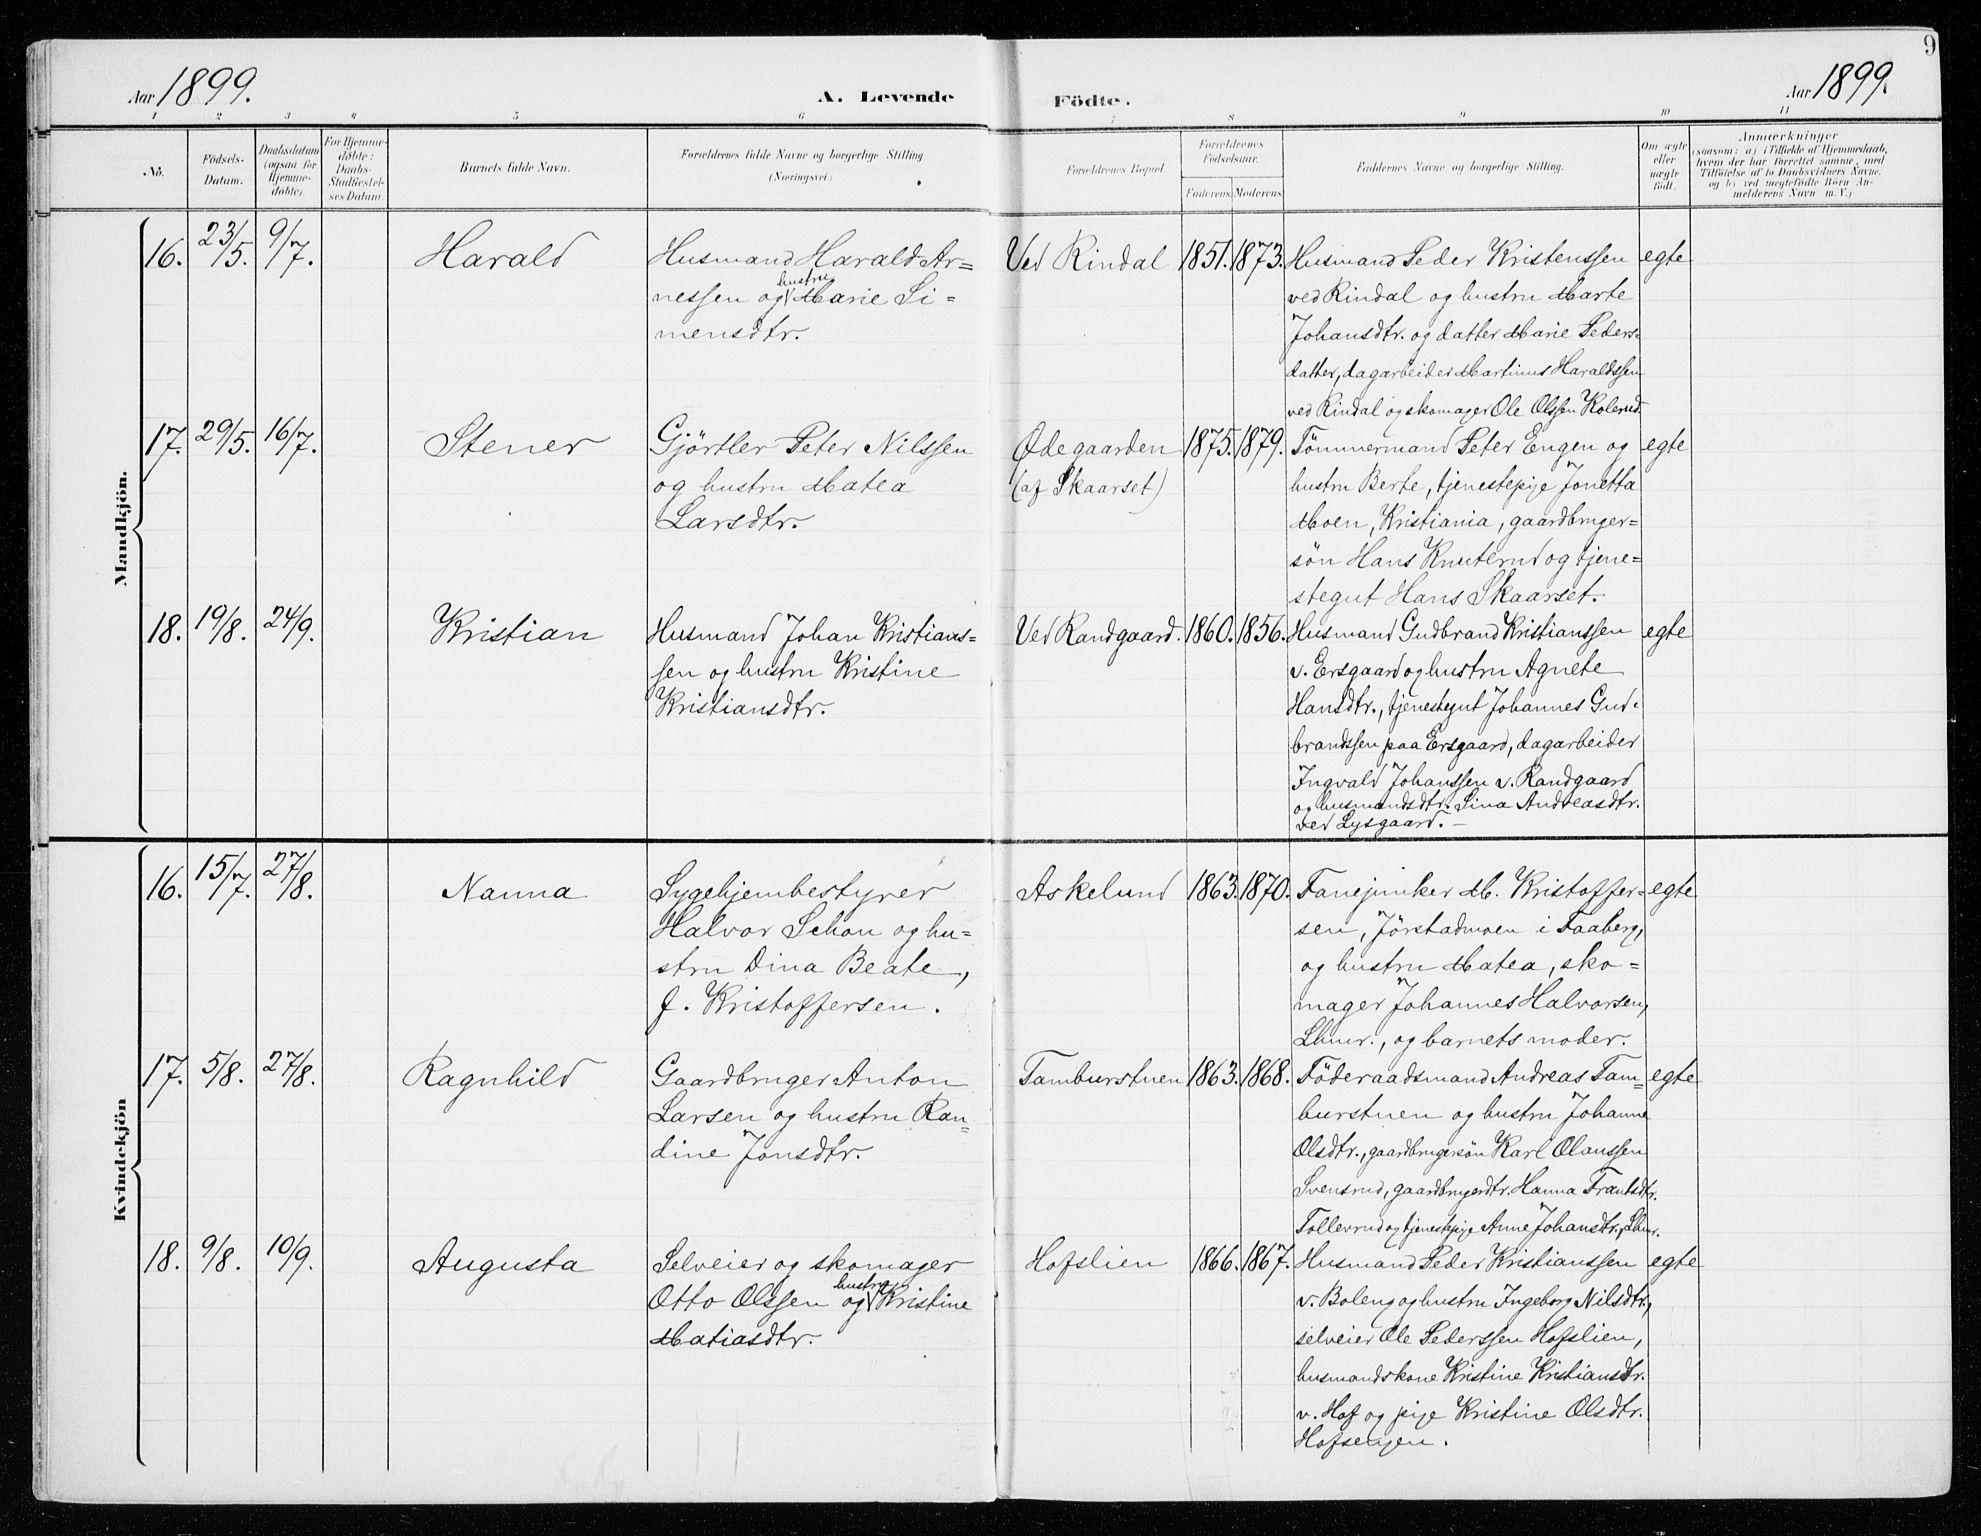 9
Aar 1899.
A. Levende Födte.
Aar 1899.
1 2 3 4 5 6 7 8 9 10 11
No.
Födsels-
Datum.
Daabsdatum
(ogsaa for
Hjemme-
døbte).
For Hjemme-
døbte:
Daabs-
Stadfæstel-
ses Datum.
Barnets fulde Navn.
Forældrenes fulde Navne og borgerlige Stilling
(Næringsvei.)
Forældrenes Bopæl.
Forældrenes
Födselsaar.
Faderens Moderens
Faddernes Navne og borgerlige Stilling.
Om ægte
eller
uægte
født.
Anmærkninger
(saasom: a) i Tilfælde af Hjemmedaab,
hvem der har forrettet samme, med
Tilföielse af to Daabsvidners Navne,
og b) ved uægtefödte Börn An-
melderens Navn m. V.)
Mandkjön.
16. 23/5. 9/7. Harald
Husmand Harald Ar=
nessen og hustru Marie Si=
mensdtr.
Ved Rindal 1851. 1873.
Husmand Peder Kristenssen
ved Rindal og hustru Marte
Johansdtr. og datter Marie Peders-
datter, dagarbeider Martinus Haraldssen
ved Rindal og skomager Ole Olssen Kolerud.
egte
17. 29/5. 16/7. Stener
Gjörtler Peter Nilssen
og hustru Matea
Larsdtr.
Ødegaarden
(af Skaarset)
1875. 1879.
Tömmermand Peter Engen og
hustru Berte, tjenestepige Jonetta
Moen, Kristiania, gaardbruger=
sön Hans Knuterud og tjene=
stegut Hans Skaarset.
egte
18. 19/8. 24/9. Kristian
Husmand Johan Kristians=
sen og hustru Kristine
Kristiansdtr.
Ved Randgaard. 1860. 1856.
Husmand Gudbrand Kristianssen
v. Ersgaard og hustru Agnete
Hansdtr., tjenestegut Johannes Gud-
brandssen paa Ersgaard, dagarbeider
Ingvald Johanssen v. Randgaard
og husmandsdtr. Lina Andreasdtr.
ved Lysgaard. –
egte
Kvindekjön
16. 15/7. 27/8. Nanna
Sygehjembestyrer
Halvor Schou og hu=
stru Dina Beate,
f. Kristoffersen.
Askelund 1863. 1870.
Fanejunker M. Kristoffer=
sen, Jörstadmoen i Faaberg,
og hustru Matea, sko=
mager Johannes Halvorsen,
Lhmr., og barnets moder.
egte
17. 5/8. 27/8. Ragnhild
Gaardbruger Anton
Larsen og hustru Ran=
dine Jonsdtr.
Tamburstuen 1863. 1868.
Föderaadsmand Andreas Tam=
burstuen og hustru Johanne
Olsdtr., gaardbrugersön Karl Olaussen
Svensrud, gaardbrugerdtr. Hanna Frantsdtr.
Tollersrud og tjenestepige Anne Johansdtr., Lhmr.
egte
18. 9/8. 10/9. Augusta
Selveier og skomager
Otto Olssen og hustru Kristine
Matiasdtr.
Hofslien 1866. 1867.
Husmand Peder Kristianssen
v. Boleng og hustru Ingeborg Nilsdtr.,
selveier Ole Pederssen Hofslien,
husmandskone Kristine Kristiansdtr.
v. Hof og pige Kristine Olsdtr.
Hofsengen.
egte